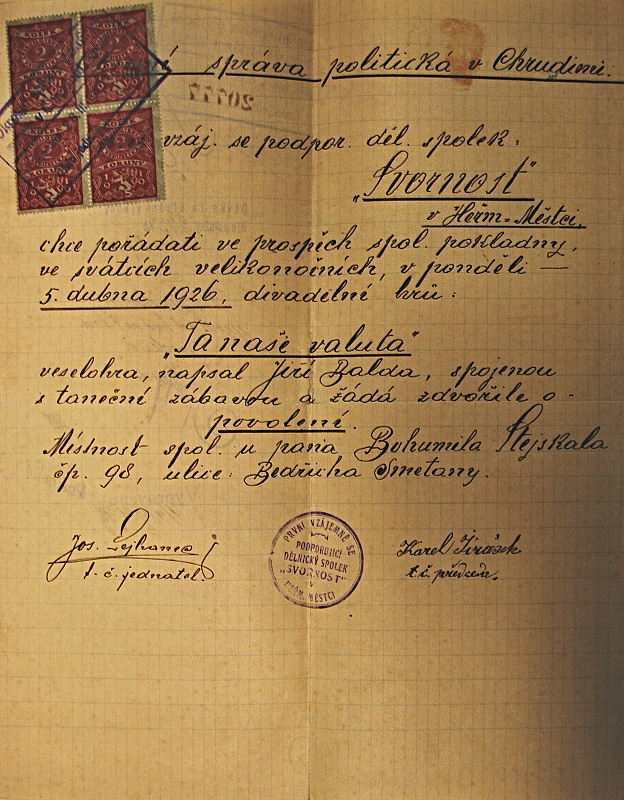 í správa politická v Chrudimi:
vzáj. se podpor. děl. spolek:
„Svornost"
v Heřm. Městci,
chce pořádati ve prospěch spol. pokladny,
ve svátcích velikonočních, v pondělí —
5. dubna 1926, divadelní hru:
„Ta naše valuta"
veselohra, napsal Jiří Balda, spojenou
s taneční zábavou a žádá zdvořile o -
povolení.
Místnost spol. u pana Bohumila Štejskala
čp. 98, ulice: Bedřicha Smetany.
Jos.
t. č. jednatel.
PRVNÍ VZÁJEMNĚ SE
PODPORUJÍCÍ
DĚLNICKÝ SPOLEK
„SVORNOST"
V
HEŘM. MĚSTCI
Karel Jirásek
t. č. předseda.
KOLEK
2
KORUNY
KOLEK
2
KORUNY
KOLEK
2
KORUNY
KOLEK
2
KORUNY
20777